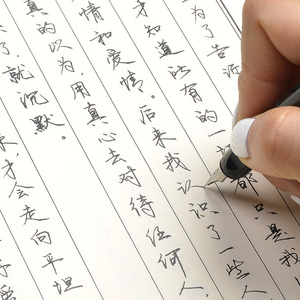 为了告诉
才知道所有的一切都只是我
情和爱情。后来我认识了一些人
真的以为，用真心去对待任何人
了，就沉默。
才会走向平坦